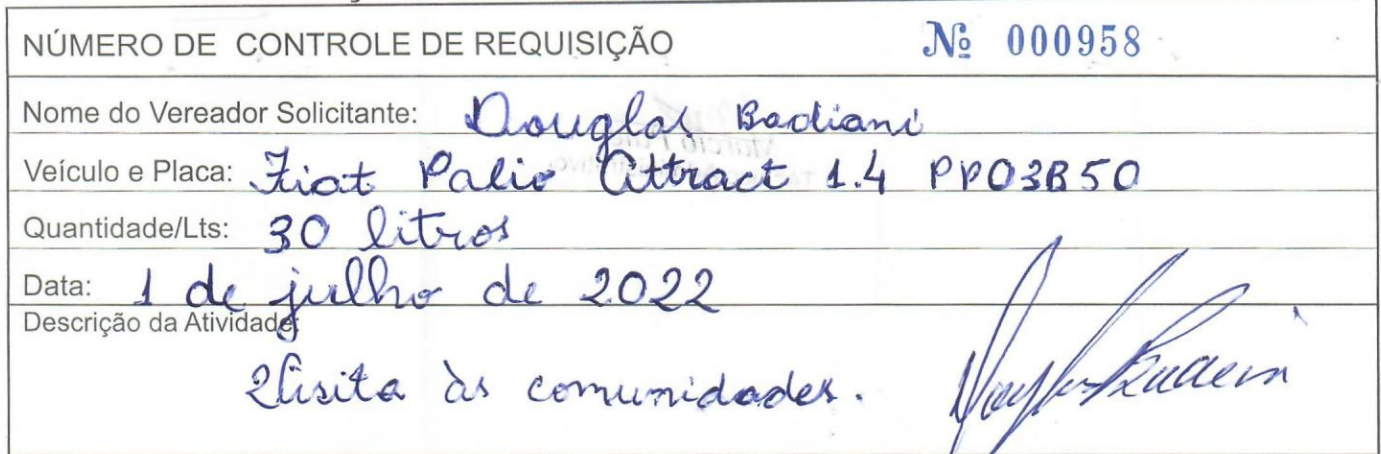 NÚMERO DE CONTROLE DE REQUISIÇÃO Nº 000958
Nome do Vereador Solicitante: Douglas Badiani
Veículo e Placa: Fiat Palio Attract 1.4 PPO3B50
Quantidade/Lts: 30 litros
Data: 1 de julho de 2022
Descrição da Atividade:
Visita às comunidades.